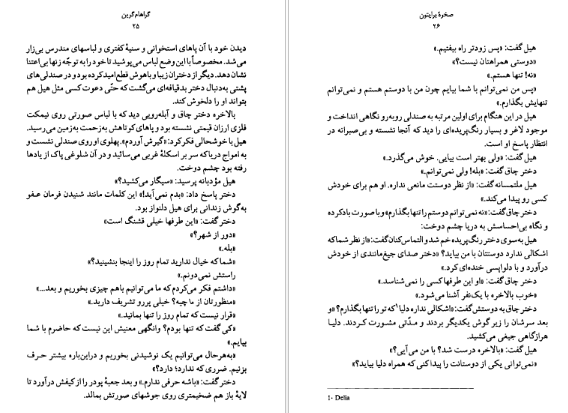 گراهام‌گرین
۲۵
دیدن خود با آن پاهای استخوانی و سینهٔ کفتری و لباسهای مندرس بی‌زار
می‌شد. مخصوصاً با این وضع لباس می‌پوشید تا خود را به توجّه زنها بی‌اعتنا
نشان دهد. دیگر از دختران زیبا و باهوش قطع امید کرده بود و در صندلی‌های
پشتی به‌دنبال دختر بدقیافه‌ای می‌گشت که حتّی دعوت کسی مثل هیل هم
بتواند او را دلخوش کند.
بالاخره دختر چاق و آبله‌رویی دید که با لباس صورتی روی نیمکت
فلزی ارزان قیمتی نشسته بود و پاهای کوتاهش به‌زحمت به‌زمین می‌رسید.
هیل با خوشحالی فکر کرد: «گیرش آوردم.» پهلوی او روی صندلی نشست و
به امواج دریا که سر بر اسکلهٔ غربی می‌سائید و در آن شلوغی پاک از یادها
رفته بود چشم دوخت.
هیل مؤدبانه پرسید: «سیگار می‌کشید؟»
دختر پاسخ داد: «بدم نمی‌آید!» این کلمات مانند شنیدن فرمان عفو
به‌گوش زندانی برای هیل دلنواز بود.
دختر گفت: «این طرفها خیلی قشنگ است»
«دور از شهر؟»
«بله.»
«شما که خیال ندارید تمام روز را اینجا بنشینید؟»
راستش نمی‌دونم.»
«داشتم فکر می‌کردم که ما می‌توانیم باهم چیزی بخوریم و بعد...»
«منظورتان از ما چیه؟ خیلی پررو تشریف دارید.»
«قرار نیست که تمام روز را تنها بمانید.»
«کی گفت که تنها بودم؟ وانگهی معنیش این نیست که حاضرم با شما
بیایم.»
«به‌هرحال می‌توانیم یک نوشیدنی بخوریم و دراین‌باره بیشتر حرف
بزنیم. ضرری که ندارد؛ دارد؟»
دختر گفت: «باشه حرفی ندارم.» و بعد جعبهٔ پودر را از کیفش درآورد تا
لایهٔ باز هم ضخیمتری روی جوشهای صورتش بمالد.
صخرهٔ برایتون
۲۶
هیل گفت: «پس زودتر راه بیفتیم.»
«دوستی همراهتان نیست؟»
«نه! تنها هستم.»
«پس من نمی‌توانم با شما بیایم چون من با دوستم هستم و نمی‌توانم
تنهایش بگذارم.»
هیل در این هنگام برای اولین مرتبه به صندلی روبه‌رو نگاهی انداخت و
موجود لاغر و بسیار رنگ‌پریده‌ای را دید که آنجا نشسته و بی‌صبرانه در
انتظار پاسخ او است.
هیل گفت: «ولی بهتر است بیایی. خوش می‌گذرد.»
دختر چاق گفت: «بله! ولی نمی‌توانم.»
هیل ملتمسانه گفت: «از نظر دوستت مانعی ندارد. او هم برای خودش
کسی رو پیدا می‌کند.»
دختر چاق گفت: «نه نمی‌توانم دوستم را تنها بگذارم» و با صورت بادکرده
و نگاه بی‌احساسش به دریا چشم دوخت:
هیل به‌سوی دختر رنگ‌پریده خم شد و التماس‌کنان گفت: «از نظر شما که
اشکالی ندارد دوستتان با من بیاید؟» «دختر صدای جیغ‌مانندی از خودش
درآورد و با دلواپسی خنده‌ای کرد.»
دختر چاق گفت: «او این طرفها کسی را نمی‌شناسد.»
«خوب بالاخره با یک‌نفر آشنا می‌شود.»
دختر چاق به دوستش گفت: «اشکالی نداره دلیا¹ که تو را تنها بگذارم؟» و
بعد سرشان را زیر گوش یکدیگر بردند و مدّتی مشورت کردند. دلیا
هرازگاهی جیغی می‌کشید.
هیل گفت: «بالاخره درست شد؟ با من می‌آیی؟»
«نمی‌توانی یکی از دوستانت را پیدا کنی که همراه دلیا بیاید؟»
1- Delia